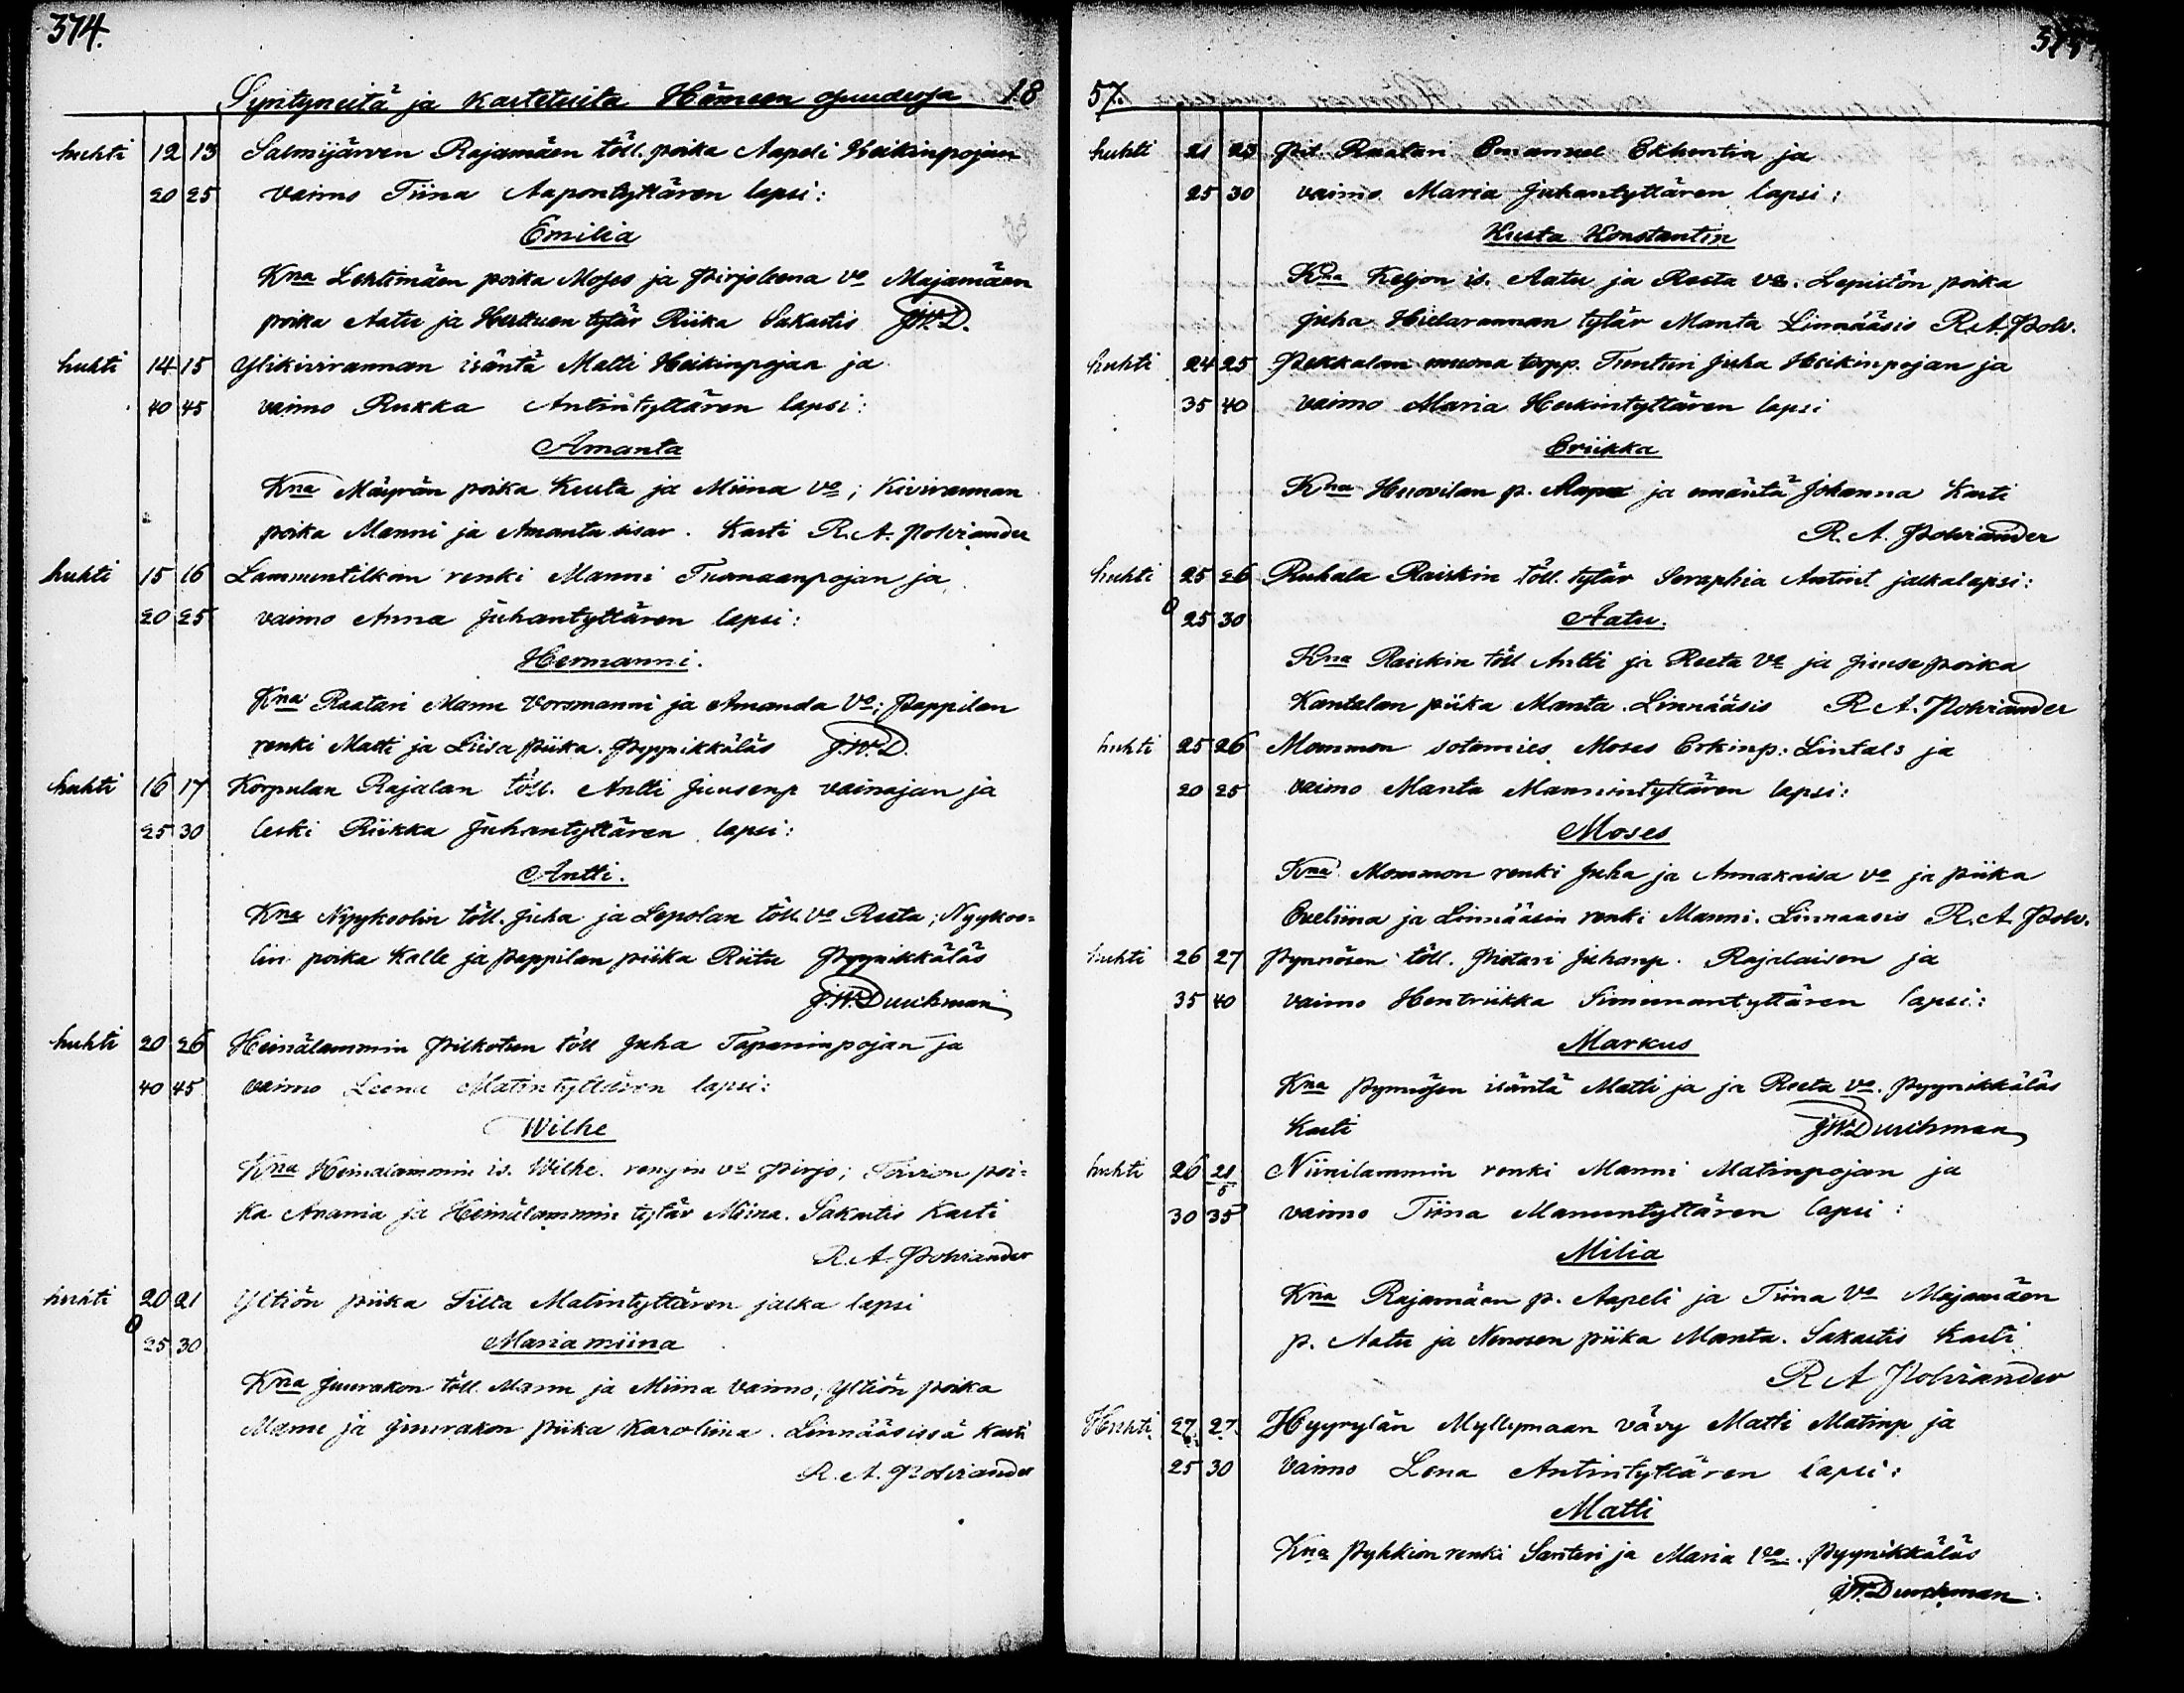 374.
Syntyneitä ja kastetuita Hämeen 18
huhti 12 13 Salmijärven Rajamäen töll. poika Aapeli Heikinpojan
20 25 vaimo Tiina Aapontyttären lapsi:
Emilia
Kna Lehtimäen poika Moses ja Pirjoleena vo Majamäen
poika Aatu ja tytär Riika Sakastis J.W.D.
huhti 14 15 Ylikivirannan isäntä Matti Heikinpojan ja
40 45 vaimo Rukka Antintyttären lapsi:
Amanta
Kna Mäyrän poika Kusta ja Miina vo; Kivirannan
poika Manni ja Amanta sisar. Kasti R. A. Polviander
huhti 15 16 Lammentilkan renki Manni Tuomaanpojan ja
20 25 vaimo Anna Juhantyttären lapsi:
Hermanni.
Kna Raatari Manu Vorsmanni ja Amanda Vo; Pappilan
renki Matti ja Liisa piika. Pyynikkäläs J.W.D.
huhti 16 17 Korpulan Rajalan töll. Antti Juusenp vainajan ja
25 30 leski Riikka Juhantyttären lapsi:
Antti.
Kna Nyykoolin töll. Juha ja Lepolan töll. vo Reeta; Nyykoo-
lin poika Kalle ja Pappilan piika Riitu Pyynikkäläs
J.W. Durchman
huhti 20 26 Heinälammin Pilkotun töll Juha Tapaninpojan ja
40 45 vaimo Leena Matintyttären lapsi:
Wilhe
Kna Heinalammin is. Wilhe. rengin vo Pirjo; Torron poi-
ka Anania ja Heinälammin tytär Miina. Sakastis Kasti
R. A. Polviander
huhti 20 21 Yltiön piika Tilta Matintyttären jalka lapsi
0 25 30 Mariamiina
Kna Juurakon töll. Manu ja Miina vaimo; Yltiön poika
Manu ja Juurakon piika Karoliina. Linnääsissä Kasti
R. A. Polviander
57. 375
huhti 21 23 Pit. Raatari Emanuel Ekhentin ja
25 30 vaimo Maria Juhantyttären lapsi:
Kusta Konstantin
Kna Keljon is. Aatu ja Reeta vo. Lepistön poika
Juha Hietarannan tytär Manta Linnääsis R.A. Polv.
huhti 24 25 Pekkalan muona torpp. Tunturi Juha Heikinpojan ja
35 40 vaimo Maria Heikintyttären lapsi
Eriikka
Kna Huovilan p. Aapo ja emäntä Johanna Kasti
R. A. Polviander
huhti 25 26 Ruhala Raiskin töll. tytär Seraphia Antint. jalkalapsi:
0 25 30 Aatu.
Kna Raiskin töll Antti ja Reeta Vo ja Juuse poika
Kantalan piika Manta. Linnääsis R. A. Polviander
huhti 25 26 Mommon sotamies Moses Erkinp: Lintals ja
20 25 vaimo Manta Mannintyttären lapsi:
Moses
Kna Mommon renki Juha ja Annakaisa vo ja piika
Eveliina ja Linnääsin renki Manni. Linnaasis R. A. Polv.
huhti 26 27 Pynnösen töll. Pietari Juhanp. Rajalaisen ja
35 40 vaimo Hentriikka Simunantyttären lapsi:
Markus
Kna Pynnösen isäntä Matti ja ja Reeta vo. Pyynikkäläs
Kasti J.W. Durchman
huhti 26 21/5 Niinilammin renki Manni Matinpojan ja
30 35 vaimo Tiina Manuntyttären lapsi:
Milia
Kna Rajamäen p. Aapeli ja Tiina Vo Majamäen
p. Aatu ja Nenosen piika Manta. Sakastis Kasti
R A Polviander
Huhti 27. 27. Hyyrylän Myllymaan vävy Matti Matinp ja
25 30 vaimo Lena Antintyttären lapsi:
Matti
Kna Pyhkion renki Santeri ja Maria vo. Pyynikkäläs
J.W. Durchman.